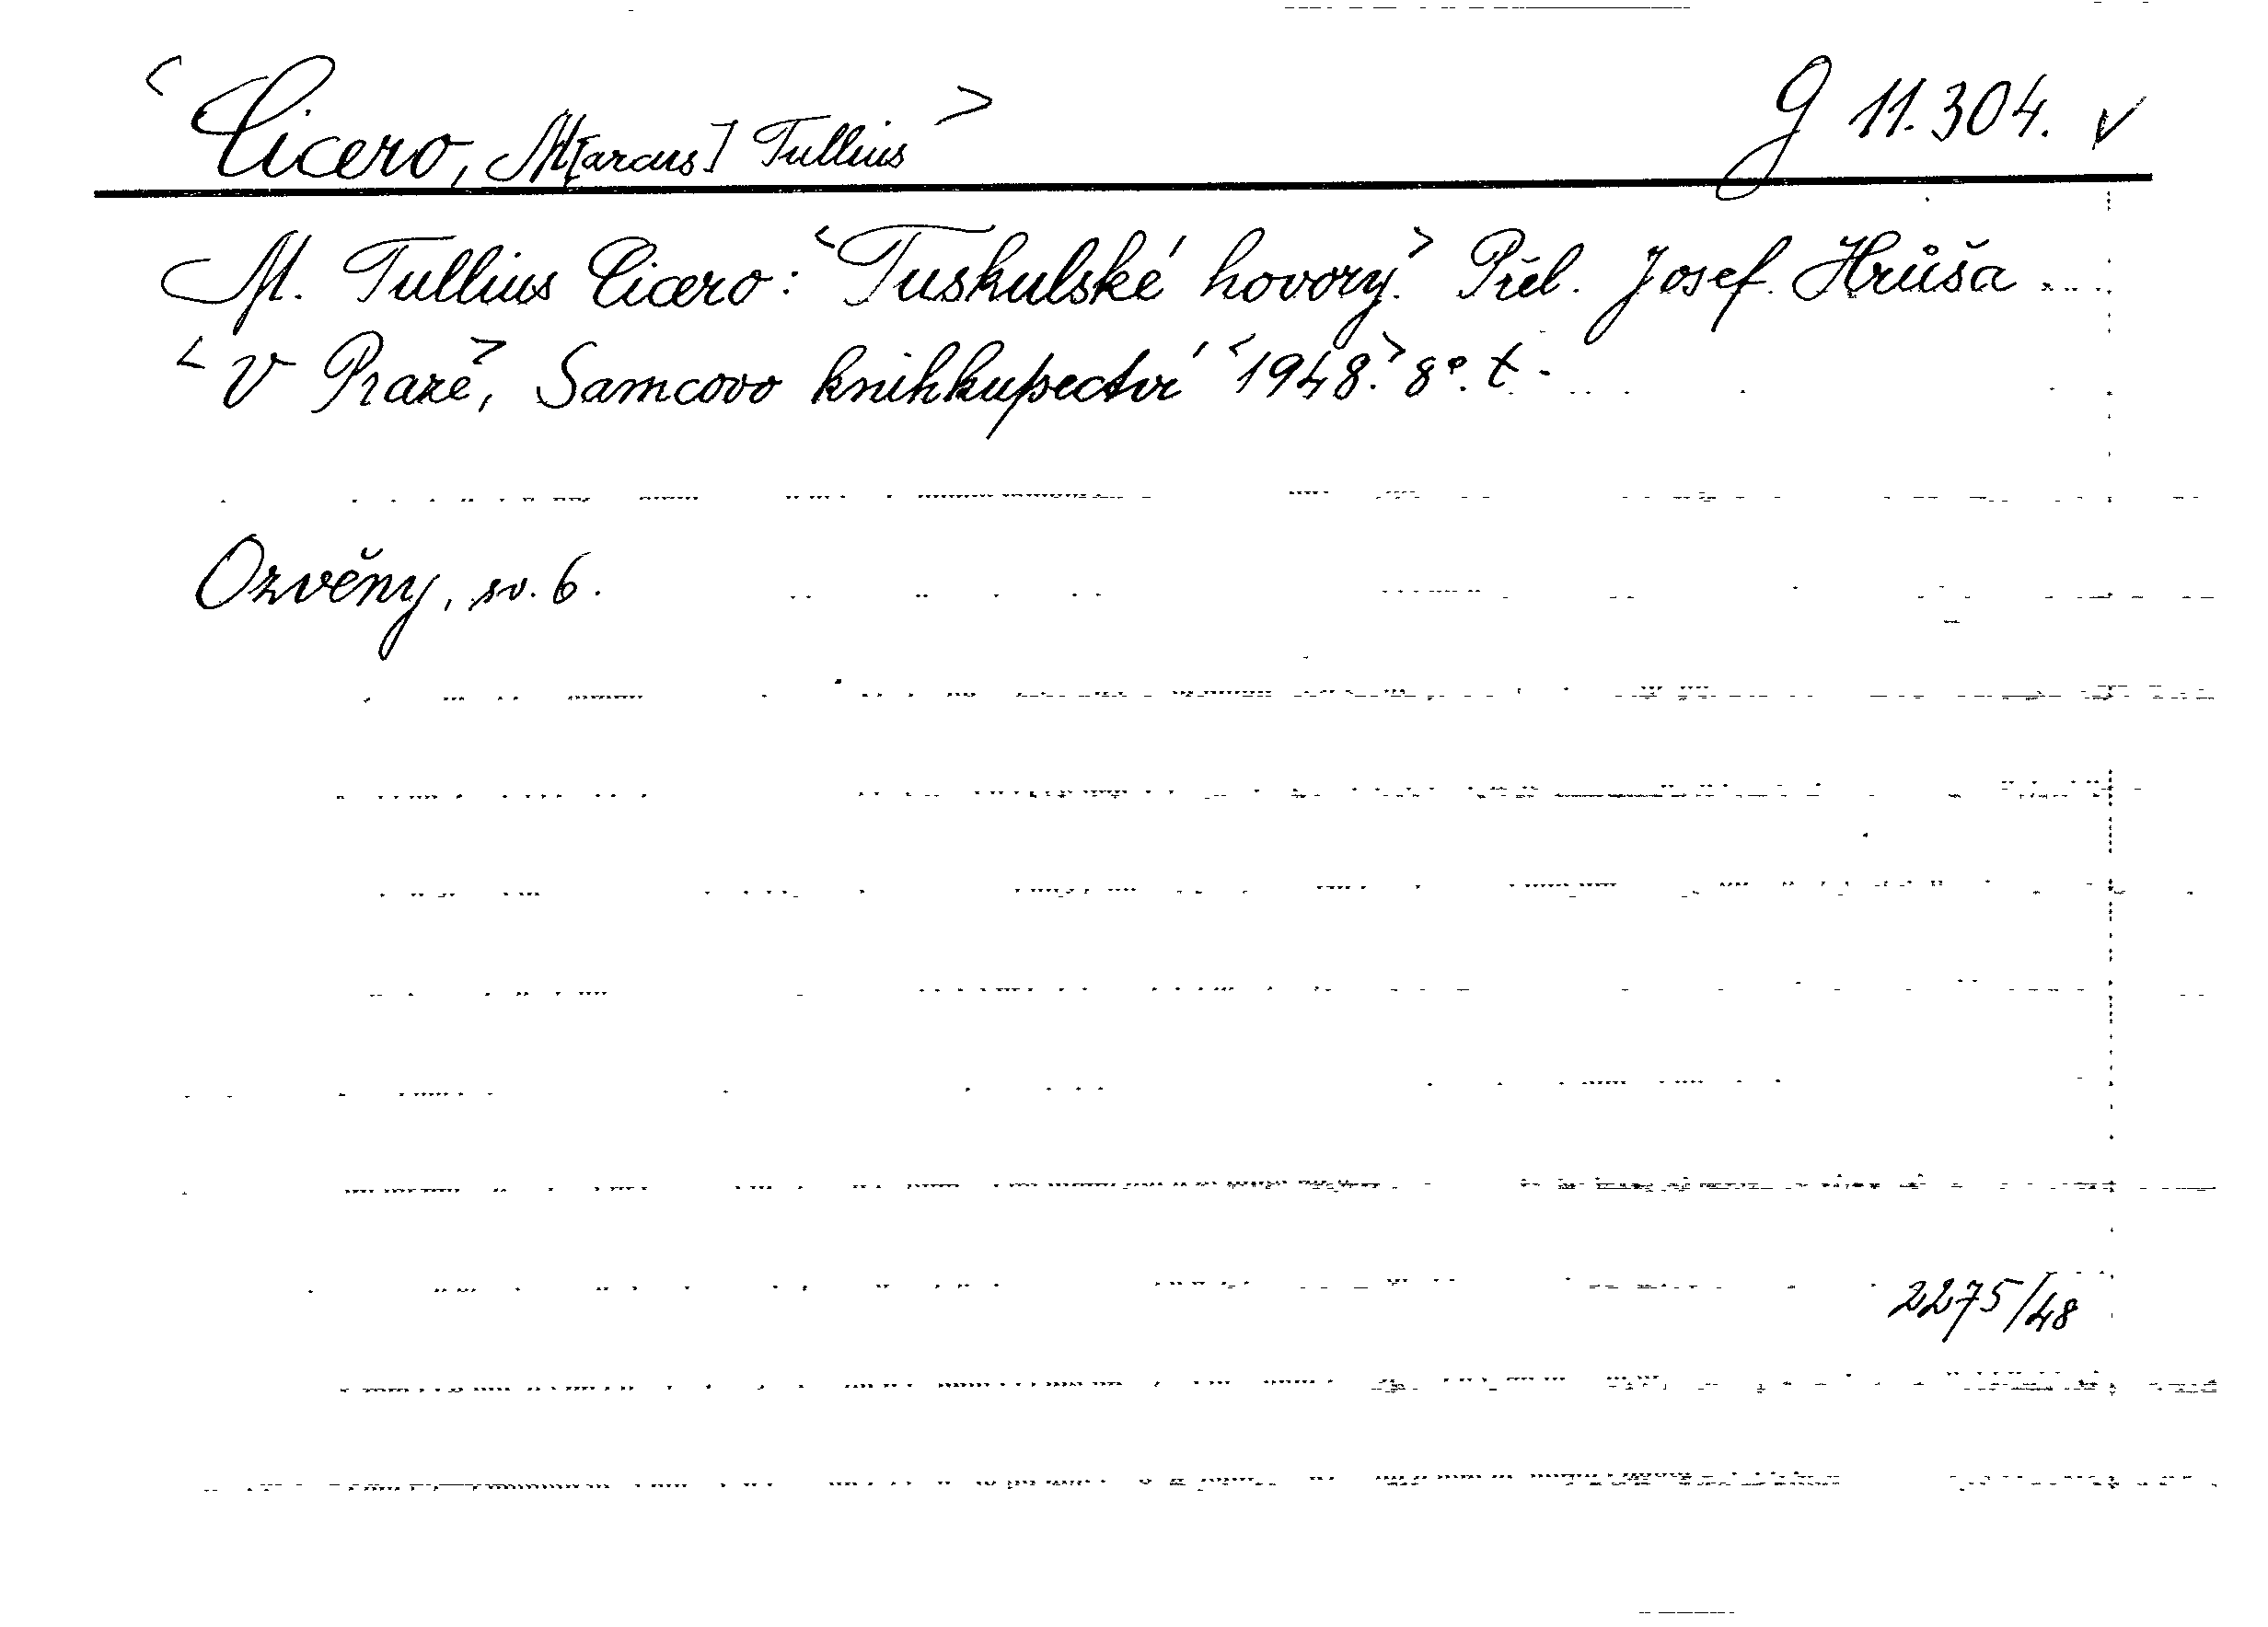 <Cicero, M[arcus] Tullius> G 11.304. ✓
M. Tullius Cicero: <Tuskulské hovory.> Přel. Josef Hrůša
<V Praze>, Samcovo knihkupectví <1948.> 8°. t.
Ozvěny, sv. 6.
2275/48